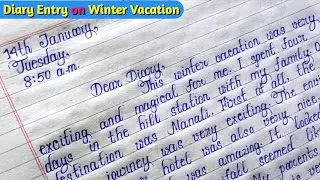 Diary Entry on Winter Vacation
14th January,
Tuesday,
8:50 a.m.
Dear Diary,
This winter vacation was very
exciting and magical for me. I spent four
days in the hill station with my family
destination was Manali. First of all, the
journey was very exciting. The
hotel was also very nice.
was amazing. It looked
fall seemed like
My parents
very